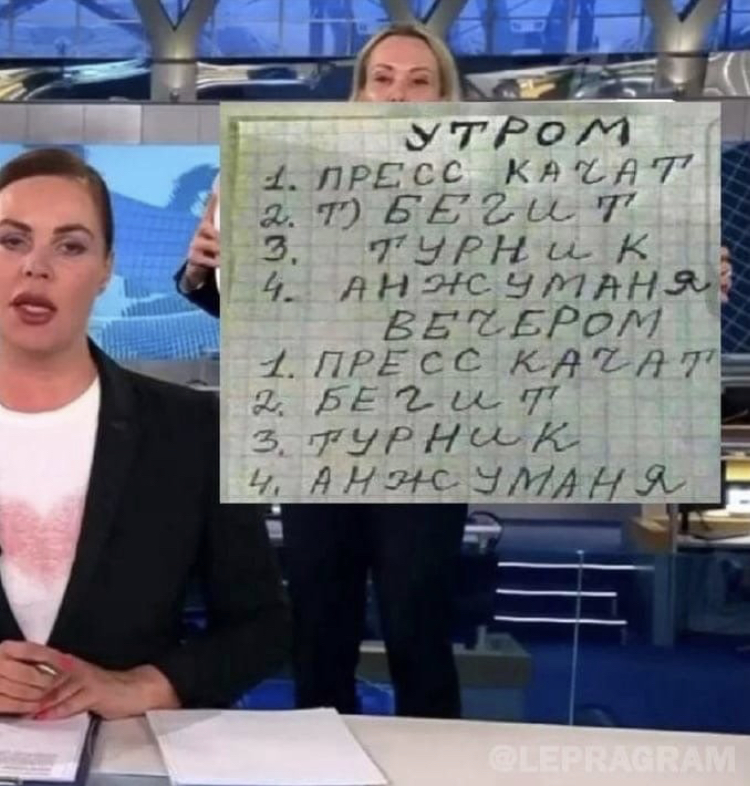 УТРОМ
1. ПРЕСС КАЧАТ
2. Т) БЕГИТ
3. ТУРНИК
4. АНЖУМАНЯ
ВЕЧЕРОМ
1. ПРЕСС КАЧАТ
2. БЕГИТ
3. ТУРНИК
4. АНЖУМАНЯ
@LEPRAGRAM